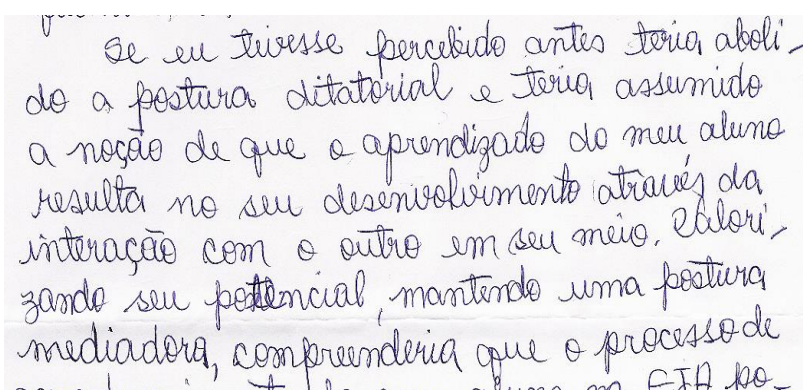 Se eu tivesse percebido antes teria aboli-
do a postura ditatorial e teria assumido
a noção de que o aprendizado do meu aluno
resulta no seu desenvolvimento através da
interação com o outro em seu meio. Valori-
zando seu potencial, mantendo uma postura
mediadora, compreenderia que o processo de